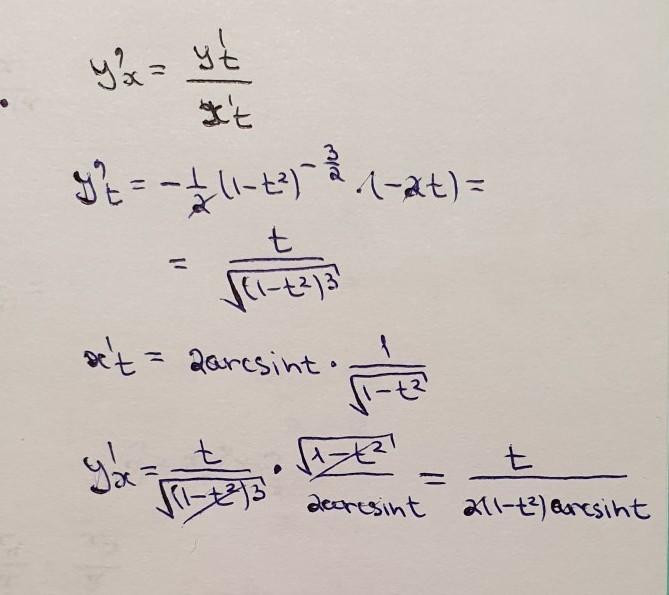 y'x = y't / x't
y't = -1/2 (1-t²)^(-3/2) · (-2t) =
= t / √((1-t²)3)
x't = 2arcsint · 1 / √(1-t²)
y'x = t / √((1-t²)3) · √(1-t²) / 2arcsint = t / 2(1-t²)arcsint